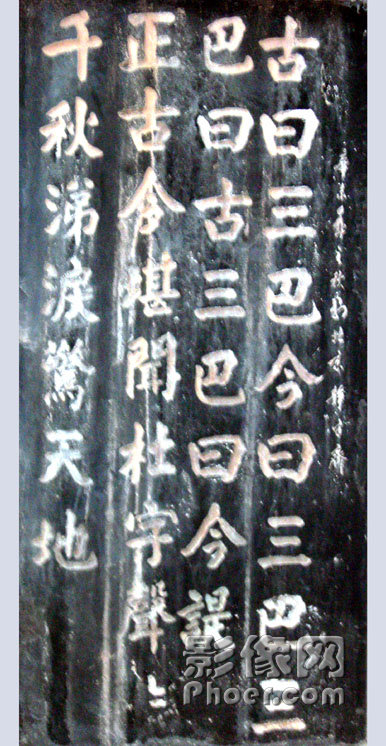 古曰三巴今曰三巴三
巴曰古三巴曰今諟
正古今堪聞杜宇聲
千秋涕淚驚天地
影像网
Phoer.com